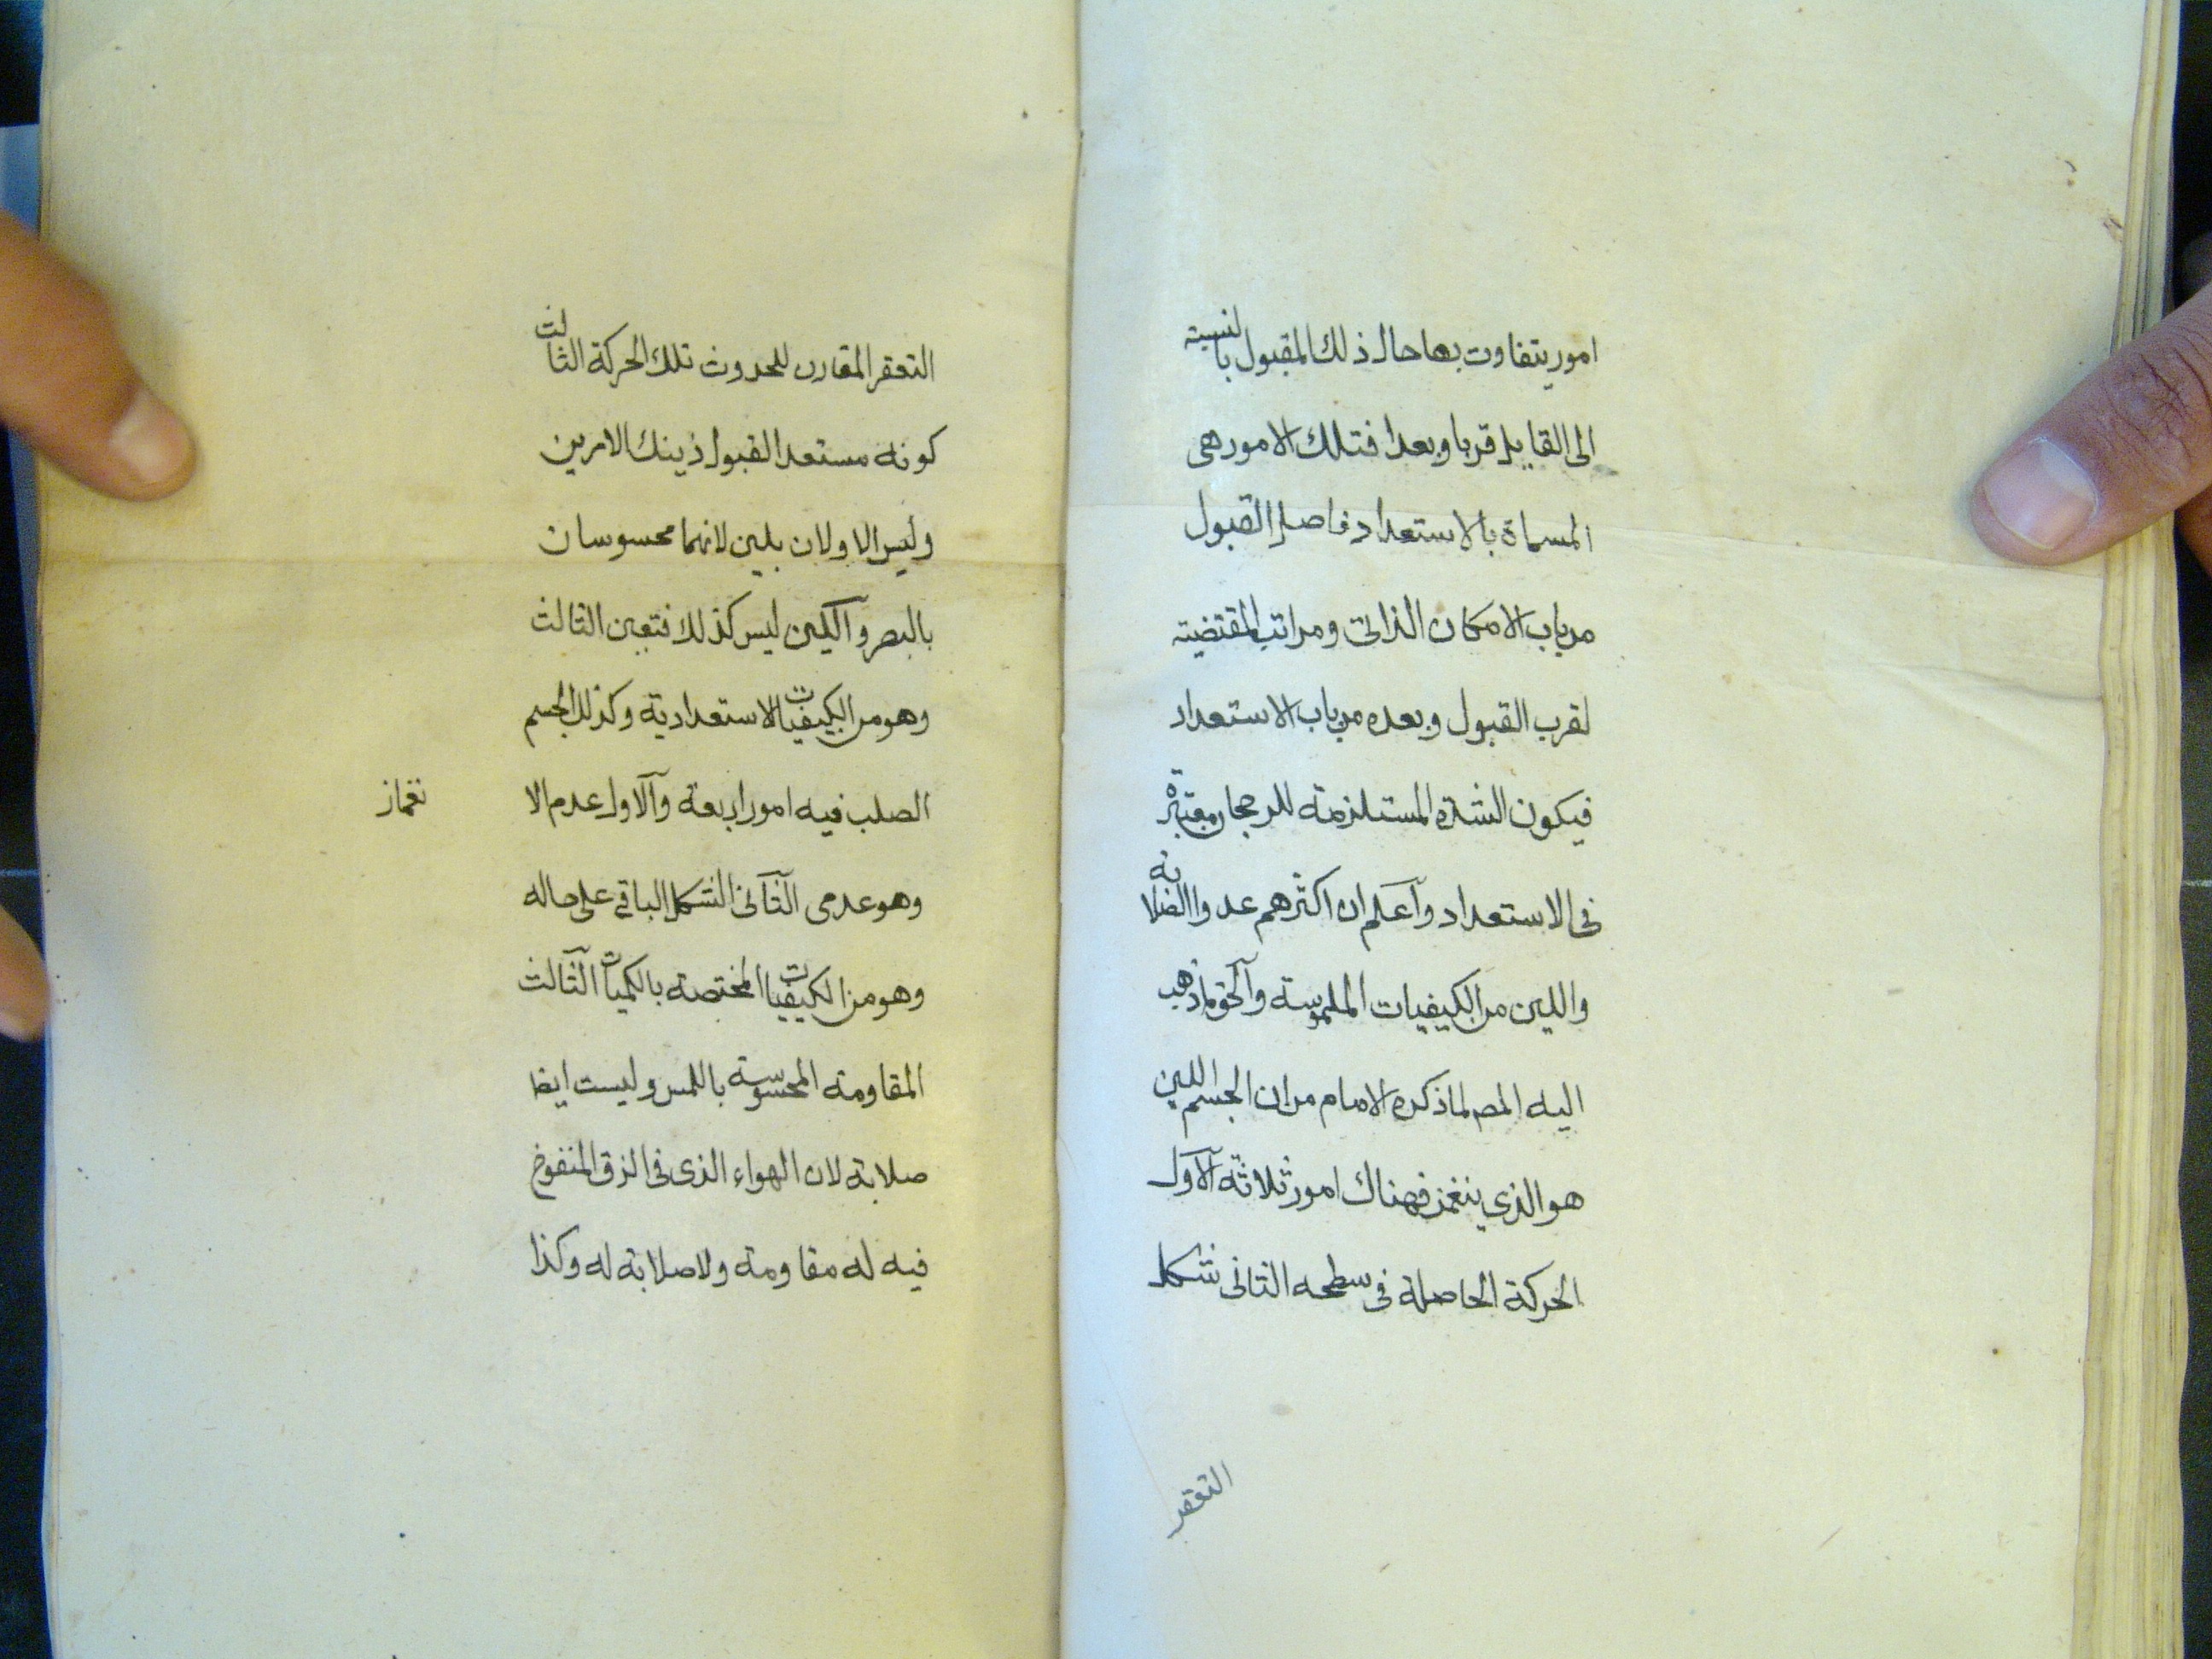 امور يتفاوت بها حال ذلك المقبول بالنسبته
الى القابل قربا وبعدا فتلك الامور هى
المسماة بالاستعداد فاصل القبول
من باب الامكان الذاتى ومراتب المقتضيته
لقرب القبول وبعده من باب الاستعداد
فيكون الشدة المستلزمة للرجحان معتبرة
فى الاستعداد وآعلم ان اكثرهم عدوا الصلابة
واللين من الكيفيات الملموسة وآلحق ماذهب
اليه المص لما ذكره الامام من ان الجسم اللين
هو الذى ينغمز فهناك امور ثلاثة آلاول
الحركة الحاصلة فى سطحه الثانى شكل
التقعر
التعقر المقارن للحدوث تلك الحركة الثالث
كونه مستعدا لقبول ذينك الامرين
وليس الاولان بلين لانهما محسوسان
بالبصر وآللين ليس كذلك فتعين الثالث
وهو من الكيفيات الاستعدادية وكذلك الجسم
الصلب فيه امور اربعة وآلاول عدم الا
نغماز
وهو عدمى آلثانى الشكل الباقى على حاله
وهو من الكيفيات المختصة بالكميات آلثالث
المقاومة المحسوسة باللمس وليست ايضا
صلابة لان الهواء الذى فى الزق المنفوخ
فيه له مقاومة ولا صلابة له وكذا